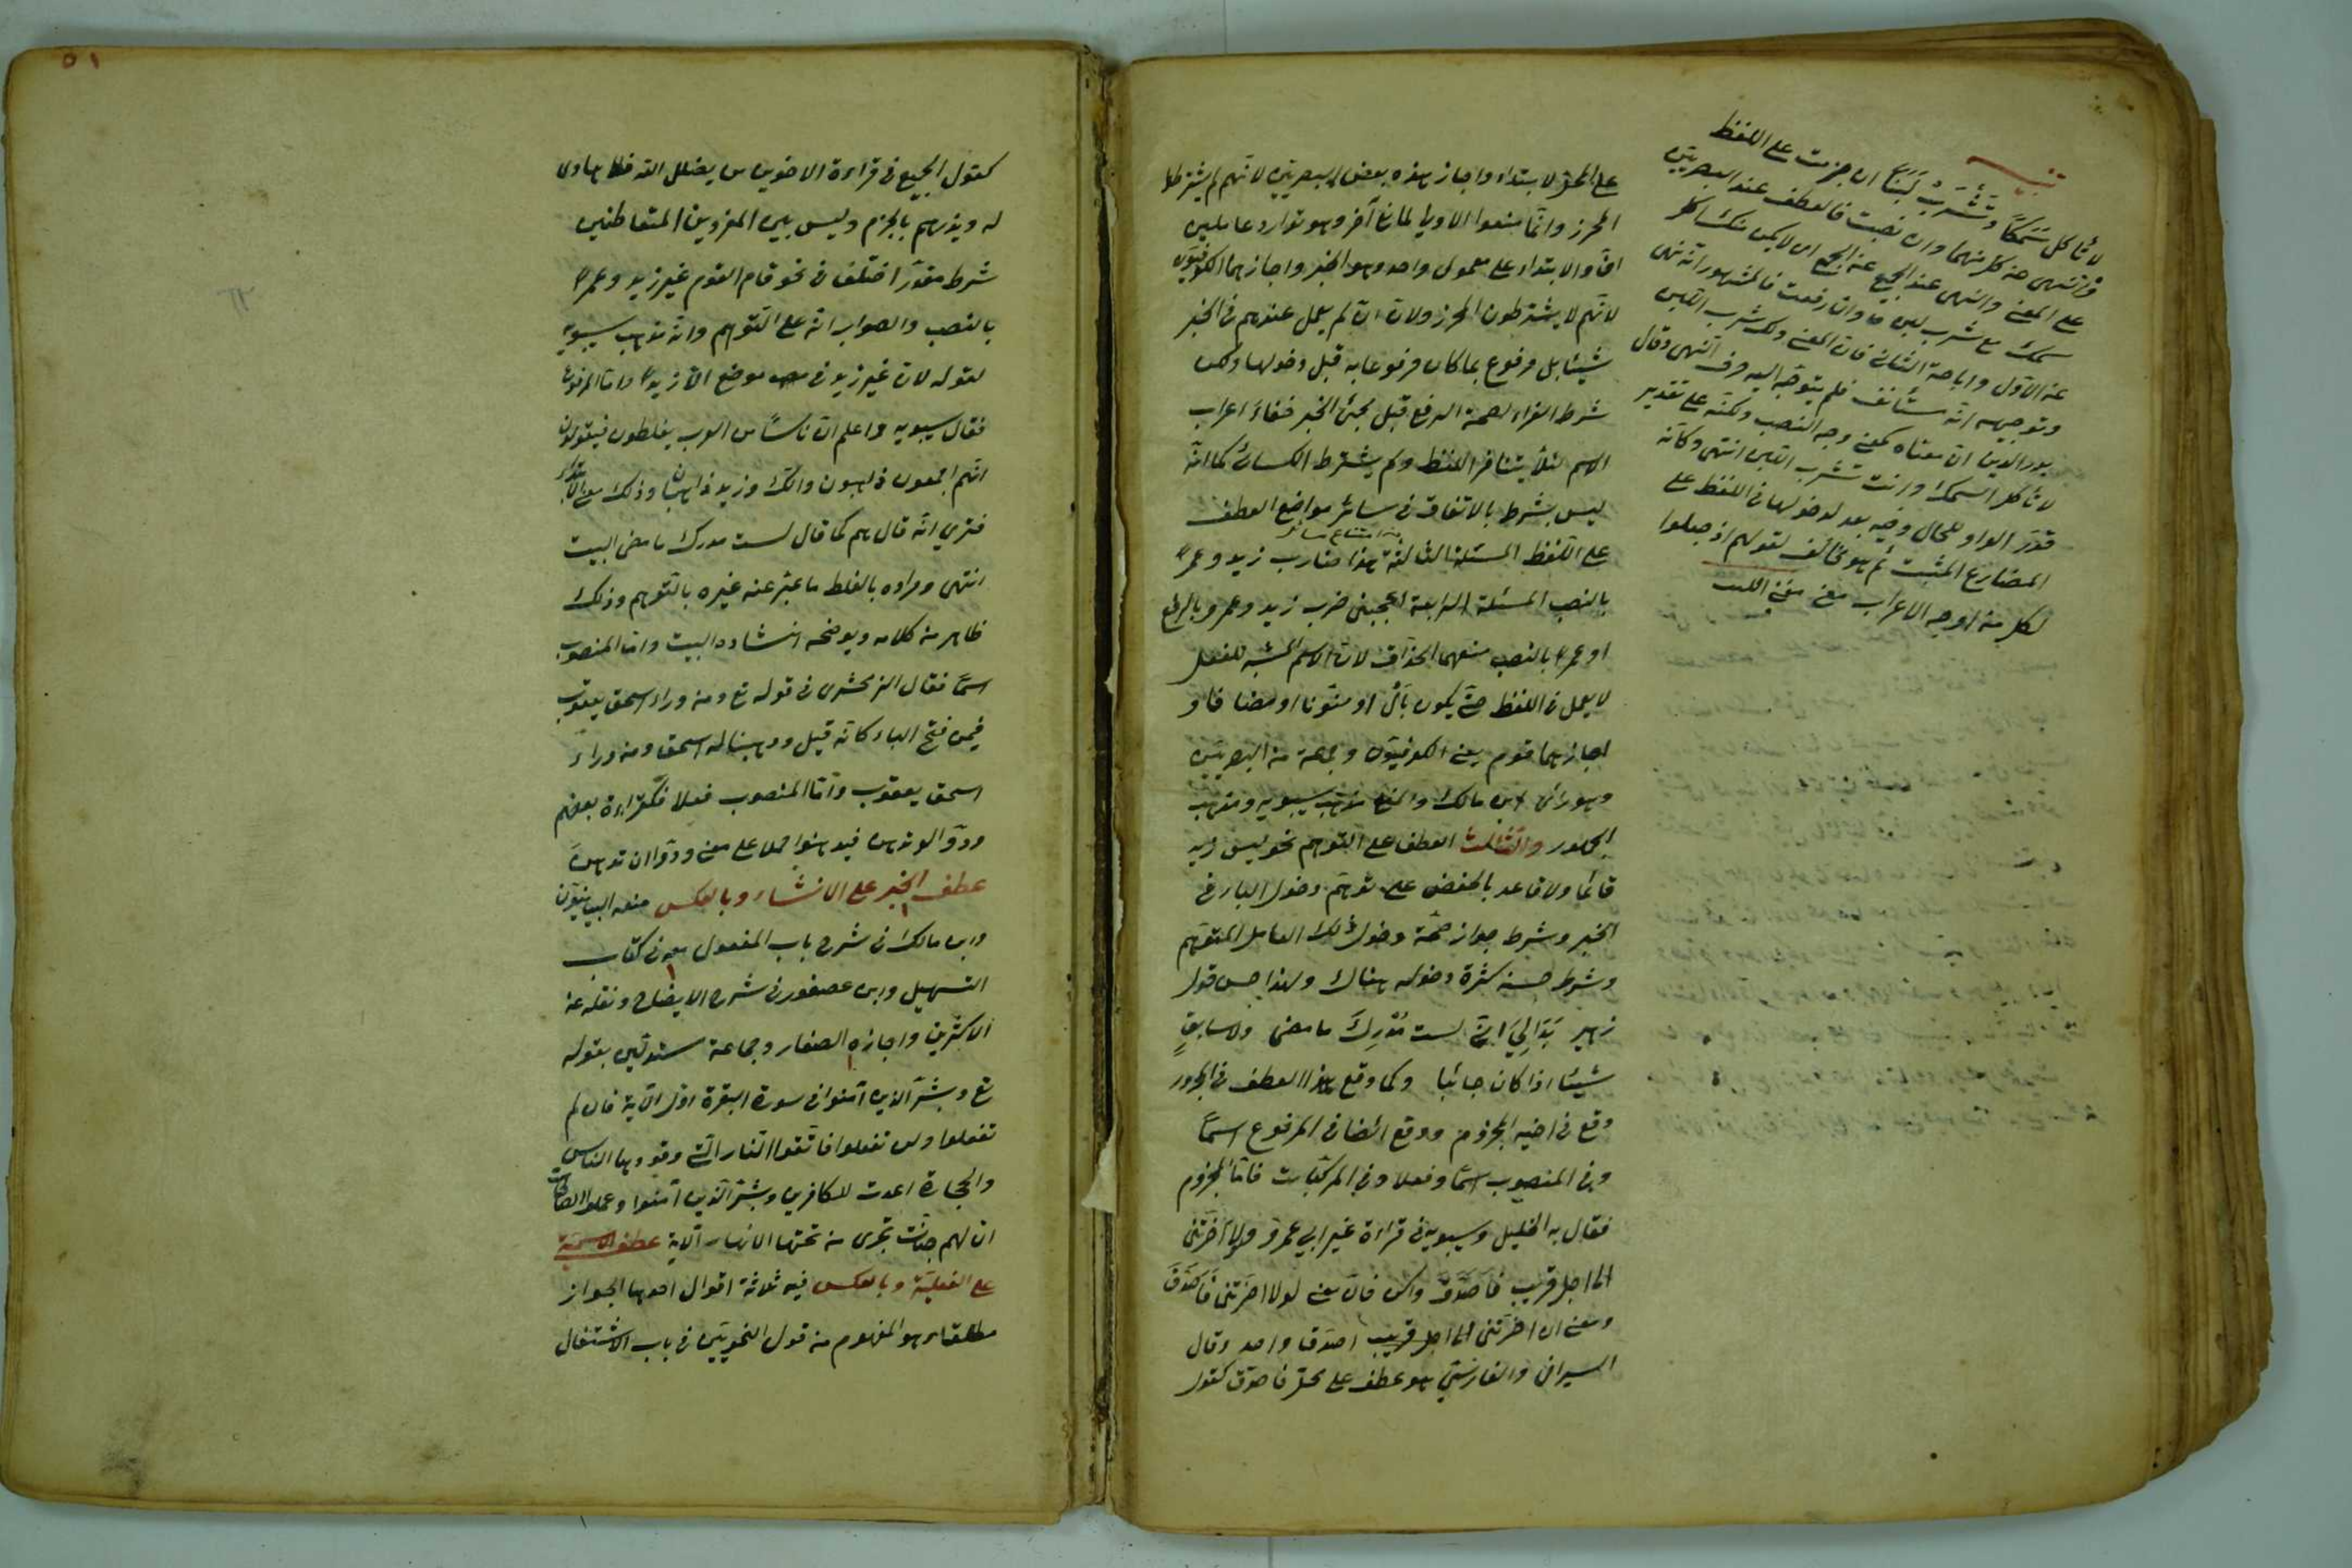 تنبيه
لا تأكل سَمَكًا وَتَشْرَبْ لَبَنًا ان جزمت على اللفظ
والنهى عن كل منهما وان نصبت فالعطف عند البصريين
على المعنى والنهى عند الجميع عن الجمع اى لا يكن منك اكل
سمك مع شرب لبن وان رفعت فالمشهور انه نهى
عن الاول واباحة الثانى فان المعنى ولك شرب اللبن
وتوجيهه انه مستأنف فلم يتوجه اليه حرف النهى وقال
بدر الدين ان معناه كمعنى وجه النصب ولكنه على تقدير
لا تأكل السمك وانت تشرب اللبن انتهى وكأنه
قدّر الواو للحال وفيه بعد لدخولها فى اللفظ على
المضارع المثبت ثم هو مخالف لقولهم اذ جعلوا
لكل من اوجه الاعراب معنى
على المحل لا بتداء واجاز هذه بعض البصريين لانهم لم يشترطوا
المحرز وانما منعوا الاولى لمانع آخر وهو توارد عاملين
انّ والابتداء على معمول واحد وهو الخبر واجازهما الكوفيون
لانهم لا يشترطون المحرز ولان انّ لم يعمل عندهم فى الخبر
شيئا بل مرفوع بما كان مرفوعا به قبل دخولها ولكن
شرط الفراء لصحة الرفع قبل مجئ الخبر خفاءَ اعراب
الاسم لئلا يتنافر اللفظ ولم يشترط الكسائى كما انه
ليس بشرط بالاتفاق فى سائر مواضع العطف
على اللفظ المسئلة الثالثة هذا ضارب زيد وعمرا
بالنصب المسئلة الرابعة اعجبنى ضرب زيد وعمرو بالرفع
او عمرا بالنصب منعهما الحذاق لان الاسم المشبه للفعل
لا يعمل فى اللفظ حتى يكون بأل او منونا او مضافا و
اجازهما قوم يعنى الكوفيون وجماعة من البصريين
وهو رأى ابن مالك والمنع مذهب سيبويه ومذهب
الجمهور والثالث العطف على التوهم نحو ليس زيد
قائما ولا قاعد بالخفض على توهم دخول الباء فى
الخبر وشرط جوازه صحة دخول ذلك العامل المتوهم
وشرط حسنه كثرة دخوله هناك ولهذا حسن قول
زهير بَدَالِيَ انّى لست مُدْرِكَ ما مضى ولا سابقٍ
شيئا اذا كان جائيا وكما وقع هذا العطف فى المجرور
وقع فى اخيه المجزوم ووقع ايضا فى المرفوع اسمًا
وفى المنصوب اسما وفعلا وفى المركبات فاما المجزوم
فقال به الخليل وسيبويه فى قراءة غير ابى عمرو لولا أخرتنى
الى اجل قريب فاصدّق واكن فان معنى لولا اخرتنى فاصدّق
ومعنى ان اخرتنى الى اجل قريب اصدّق واحد وقال
السيرافى والفارسى هو عطف على محل فاصدق كقول
٥١
كقول الجميع فى قراءة الاخوين من يضلل الله فلا هادى
له ويذرهم بالجزم وليس بين المفردين المتعاطفين
شرط مقدر اختلف فى نحو قام القوم غير زيد وعمرا
بالنصب والصواب انه على التوهم وانه مذهب سيبويه
لقوله لان غير زيد فى موضع الا زيدا واما المرفوع
فقال سيبويه واعلم ان ناسًا من العرب يغلطون فيقولون
انهم اجمعون ذاهبون وانك وزيد ذاهبان وذلك معنى الابتداء
فترى انه قال هم كما قال لست مدرك ما مضى البيت
انتهى ومراده بالغلط ما عبر عنه غيره بالتوهم وذلك
ظاهر من كلامه ويوضحه انشاده البيت واما المنصوب
اسمًا فقال الزمخشرى فى قوله تع ومن وراء اسحق يعقوب
فيمن فتح الباء كانه قيل ووهبنا له اسحق ومن وراء
اسحق يعقوب واما المنصوب فعلا فكقراءة بعضهم
ودّوا لو تدهن فيدهنوا حملا على معنى ودّوا ان تدهن
عطف الخبر على الانشاء وبالعكس منعه البيانيون
وابن مالك فى شرح باب المفعول معه فى كتاب
التسهيل وابن عصفور فى شرح الايضاح ونقله عن
الاكثرين واجازه الصفار وجماعة مستدلين بقوله
تع وبشّر الذين آمنوا فى سورة البقرة اول الآية فان لم
تفعلوا ولن تفعلوا فاتقوا النار التى وقودها الناس
والحجارة اعدت للكافرين وبشر الذين آمنوا وعملوا الصالحات
ان لهم جنات تجرى من تحتها الانهار الآية عطف الاسمية
على الفعلية وبالعكس فيه ثلاثة اقوال احدها الجواز
مطلقا وهو المفهوم من قول النحويين فى باب الاشتغال